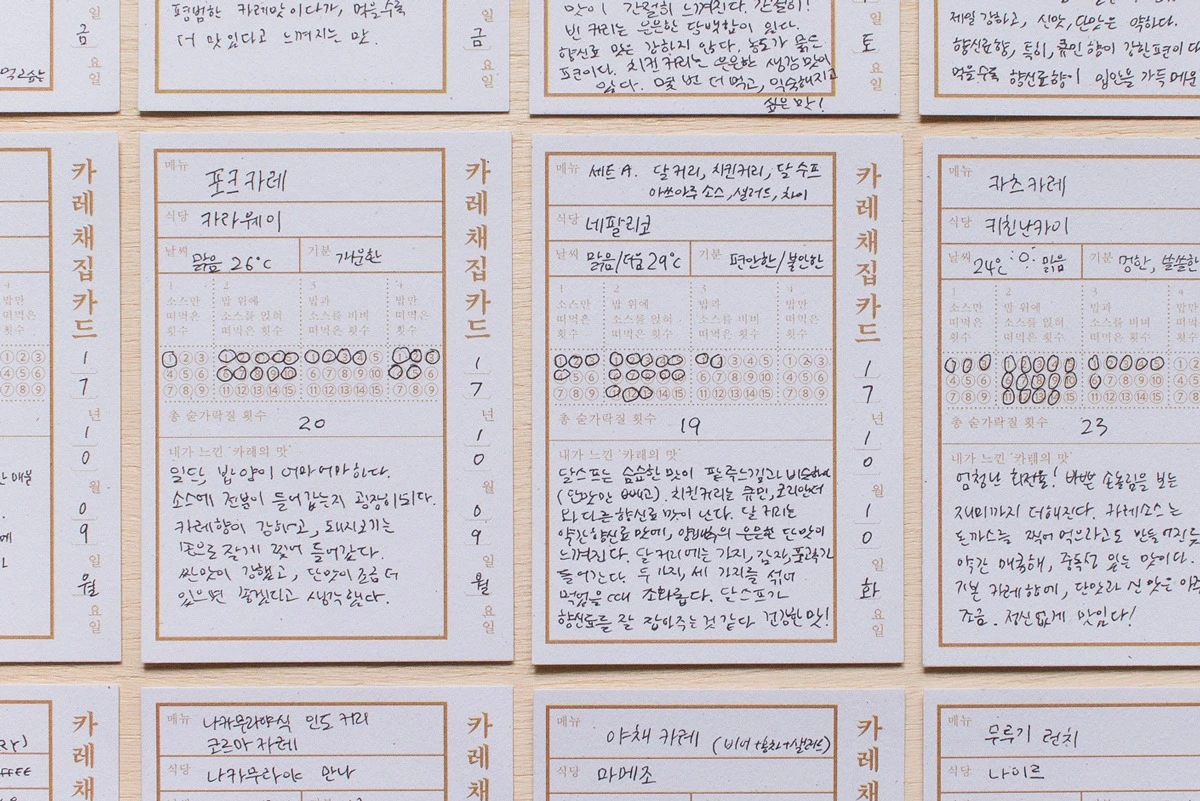 먹고싶은
금
요
일
평범한 카레맛이다가, 먹을수록
더 맛있다고 느껴지는 맛.
일
금
요
일
맛이 간절히 느껴진다. 간절히!
반 커리는 은은한 담백함이 있다.
향신료 맛은 강하지 않다. 농도가 묽은
편이다. 치킨커리는 은은한 생강맛이
있다. 몇 번 더 먹고, 익숙해지고
싶은 맛!
토
요
일
제일 강하고, 신맛, 단맛은 약하다.
향신료향, 특히, 큐민 향이 강한편이다
먹을수록 향신료향이 입안을 가득 메운
카레채집카드
17년
10월
09일
월요일
메뉴 포크 카레
식당 카라웨이
날씨 맑음 26°C
기분 개운한
1 소스만 떠먹은 횟수
2 밥 위에 소스를 얹혀 떠먹은 횟수
3 밥과 소스를 비벼 떠먹은 횟수
4 밥만 떠먹은 횟수
총 숟가락질 횟수 20
내가 느낀 '카레의 맛'
일단, 밥 양이 어마어마하다.
소스에 전분이 들어갔는지 굉장히 되다.
카레향이 강하고, 돼지고기는
손으로 잘게 찢어 들어갔다.
짠맛이 강했고, 단맛이 조금 더
있으면 좋겠다고 생각했다.
카레채집카드
17년
10월
09일
월요일
메뉴 세트 A. 달 커리, 치킨커리, 달 수프
아쓰아루 소스, 샐러드, 차이
식당 네팔리코
날씨 맑음/더움 29°C
기분 편안한/불안한
1 소스만 떠먹은 횟수
2 밥 위에 소스를 얹혀 떠먹은 횟수
3 밥과 소스를 비벼 떠먹은 횟수
4 밥만 떠먹은 횟수
총 숟가락질 횟수 19
내가 느낀 '카레의 맛'
달스프는 슴슴한 맛이 팥죽느낌과 비슷하다
(단맛만 빼고). 치킨커리는 큐민, 코리안더
와 다른 향신료 맛이 난다. 달 커리는
약간 향신료 맛에, 양배추의 은은한 단맛이
느껴진다. 달커리에는 가지, 감자, 물고추가
들어간다. 두 가지, 세 가지를 섞어
먹었을 때 조화롭다. 달스프가
향신료를 잘 잡아주는 것 같다. 건강한 맛!
카레채집카드
17년
10월
10일
화요일
메뉴 카츠 카레
식당 키친난카이
날씨 24°C 맑음
기분 멍한, 쓸쓸한
1 소스만 떠먹은 횟수
2 밥 위에 소스를 얹혀 떠먹은 횟수
3 밥과 소스를 비벼 떠먹은 횟수
총 숟가락질 횟수 23
내가 느낀 '카레의 맛'
엄청난 회전율! 바쁜 손놀림을 보는
재미까지 더해진다. 카레소스는
돈까스를 찍어먹으라고도 만들어진듯
약간 매콤해, 중독성 있는 맛이다.
기본 카레향에, 단맛과 신 맛은 아주
조금. 정신없게 맛있다!
카레채
메뉴 나카무라야식 인도 커리
코르마 카레
식당 나카무라야 만나
카레채
메뉴 야채 카레 (비어+홍차+샐러드)
식당 마메조
카레채
메뉴 무루기 런치
식당 나이르